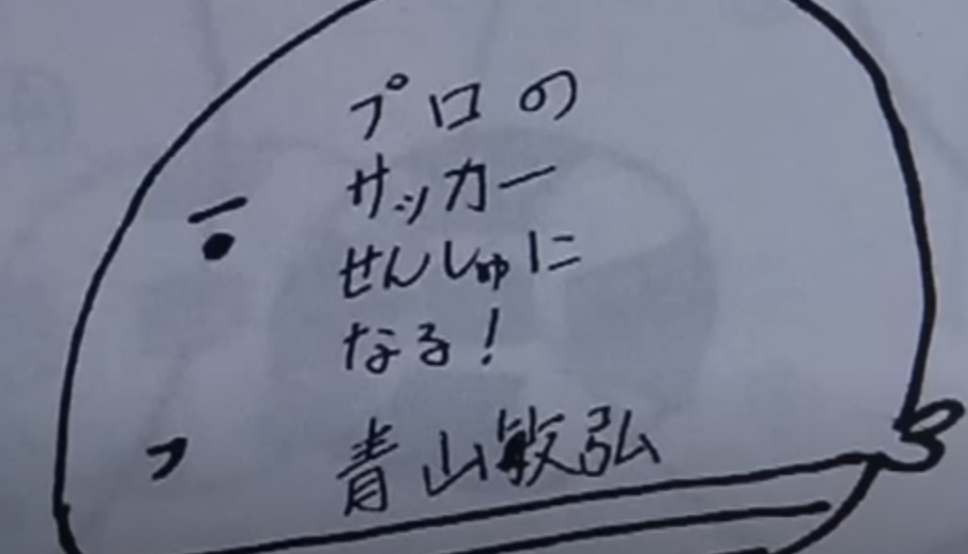 プロの
サッカー
せんしゅに
なる!
青山敏弘